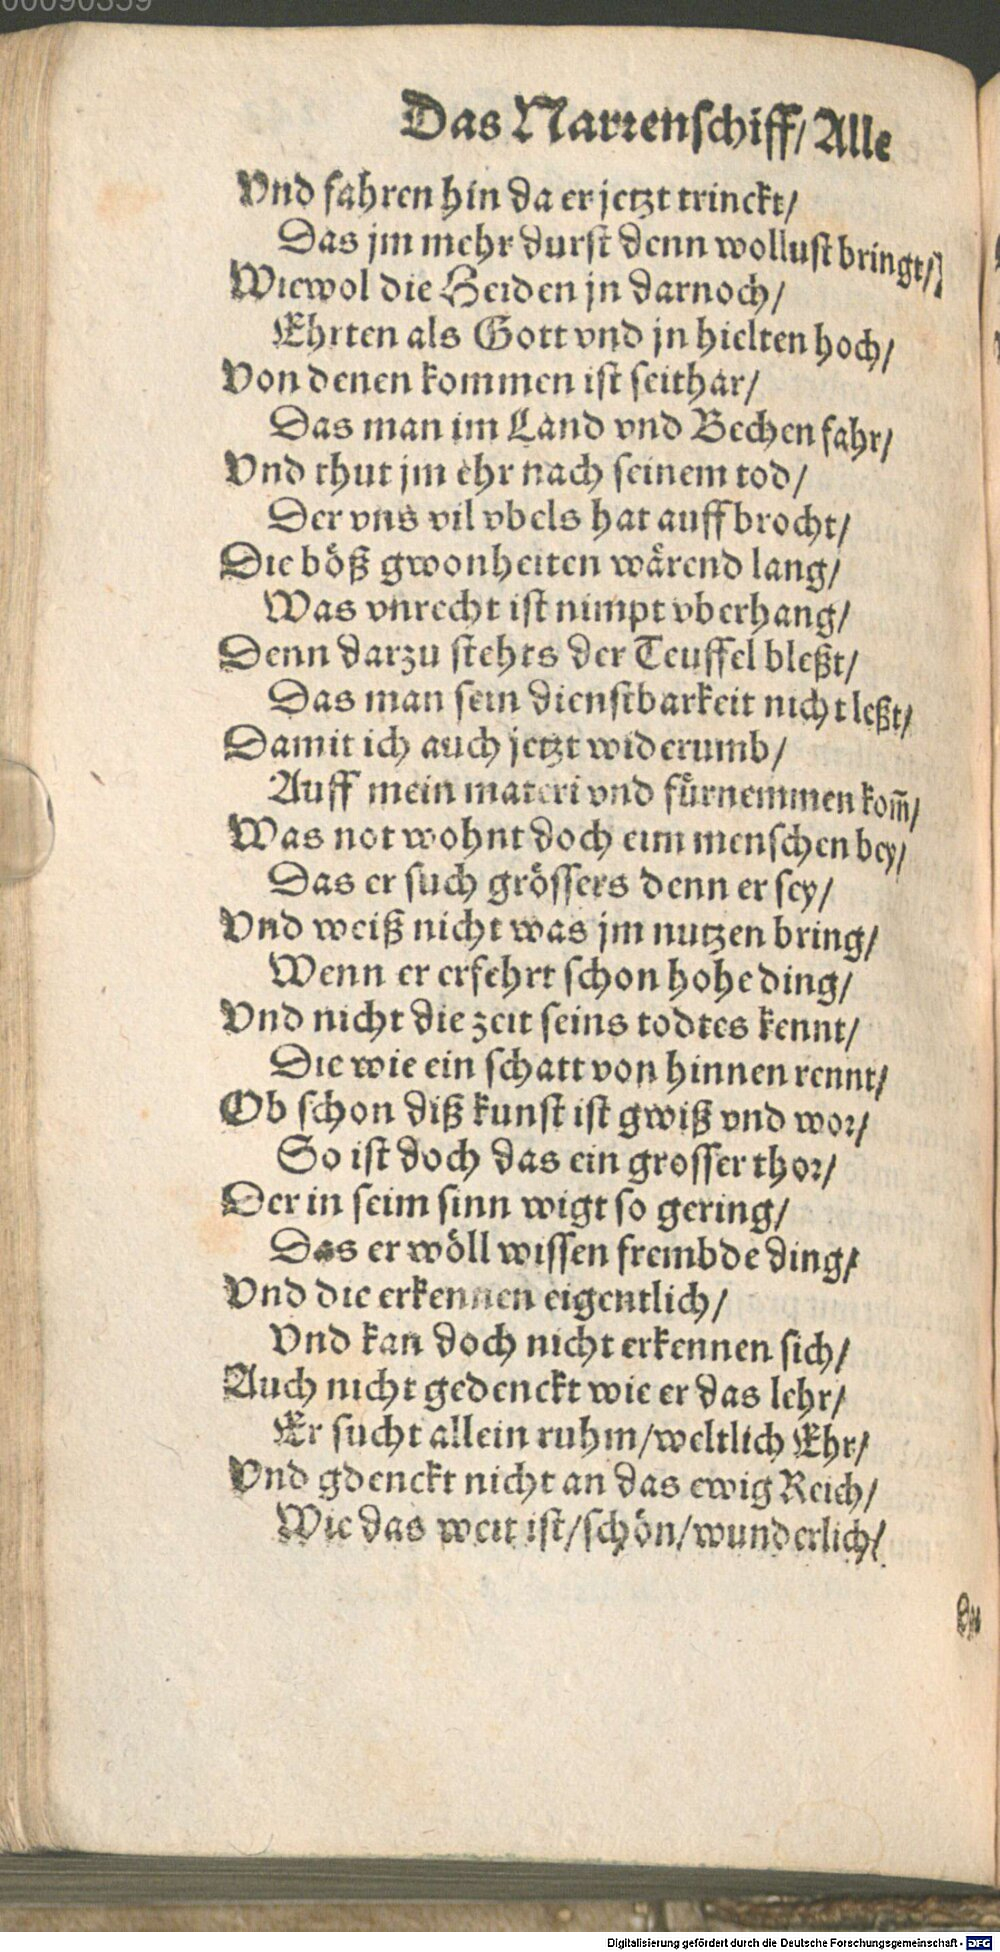 00090359
Das Narrenschiff/ Alle
Vnd fahren hin da er jetzt trinckt/
Das jm mehr durst denn wollust bringt/
Wiewol die Heiden jn darnoch/
Ehrten als Gott vnd jn hielten hoch/
Von denen kommen ist seithar/
Das man im Land vnd Bechen fahr/
Vnd thut jm ehr nach seinem tod/
Der vns vil vbels hat auffbrocht/
Die böß gwonheiten wärend lang/
Was vnrecht ist nimpt vberhang/
Denn darzu stehts der Teuffel bleßt/
Das man sein dienstbarkeit nicht leßt/
Damit ich auch jetzt widerumb/
Auff mein materi vnd fürnemmen kom̃/
Was not wohnt doch eim menschen bey/
Das er such grössers denn er sey/
Vnd weiß nicht was jm nutzen bring/
Wenn er erfehrt schon hohe ding/
Vnd nicht die zeit seins todtes kennt/
Die wie ein schatt von hinnen rennt/
Ob schon diß kunst ist gwiß vnd wor/
So ist doch das ein grosser thor/
Der in seim sinn wigt so gering/
Das er wöll wissen frembde ding/
Vnd die erkennen eigentlich/
Vnd kan doch nicht erkennen sich/
Auch nicht gedenckt wie er das lehr/
Er sucht allein ruhm/weltlich Ehr/
Vnd gdenckt nicht an das ewig Reich/
Wie das weit ist/schön/wunderlich/
Digitalisierung gefördert durch die Deutsche Forschungsgemeinschaft - DFG